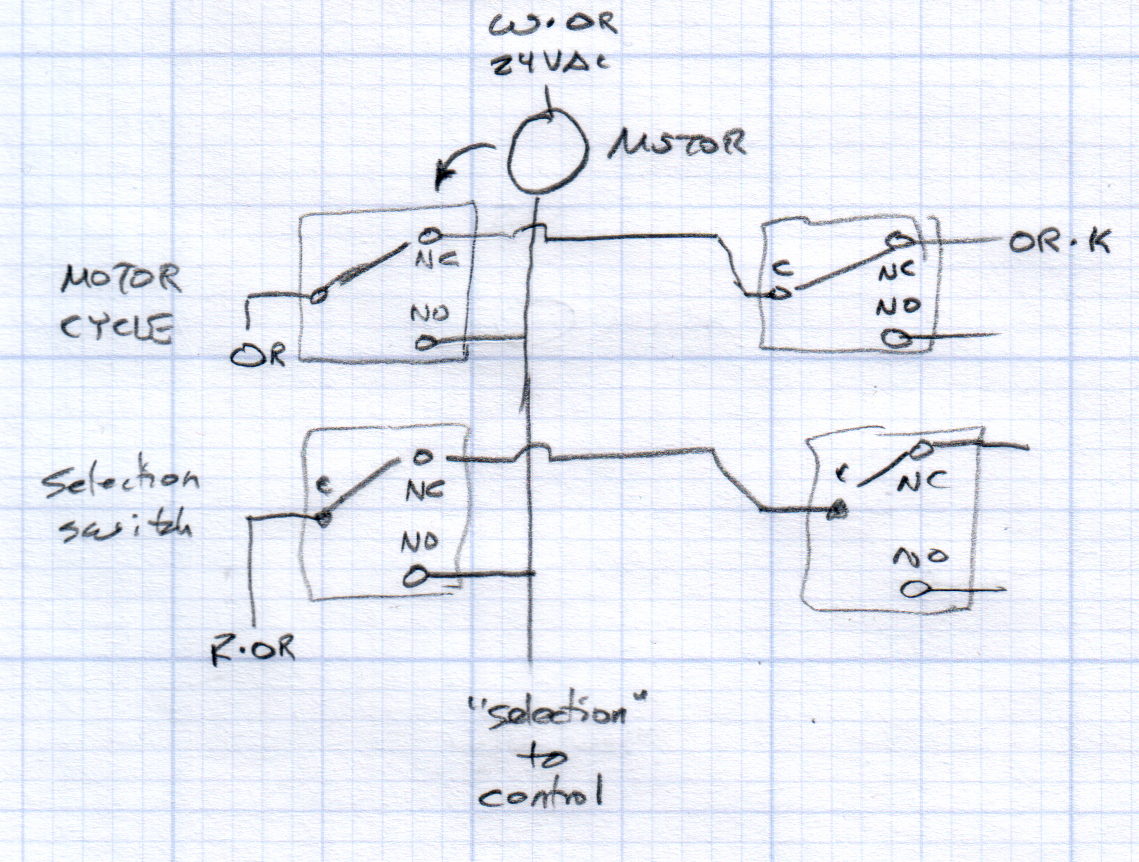 W·OR
24VAC
MOTOR
NC
NO
MOTOR
CYCLE
OR
C
NC
NO
OR·K
Selection
switch
C
NC
NO
R·OR
C
NC
NO
"selection"
to
control